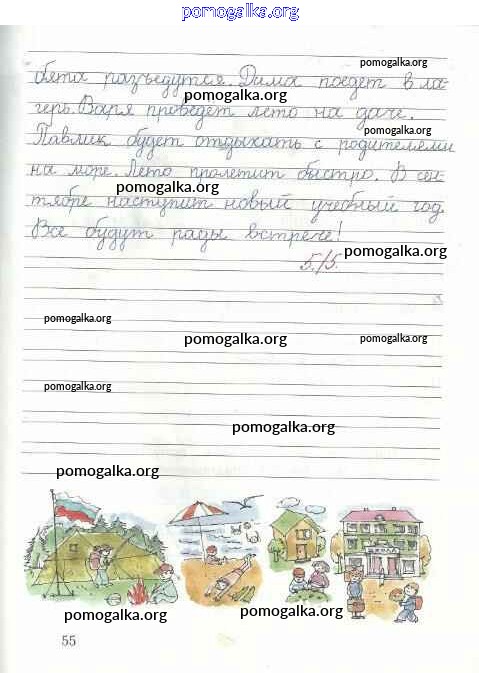 pomogalka.org
бята разъедутся. Дима поедет в ла-
pomogalka.org
pomogalka.org
герь. Варя проведет лето на даче.
pomogalka.org
Павлик будет отдыхать с родителями
на море. Лето пролетит быстро. В сен-
pomogalka.org
тябре наступит новый учебный год.
Все будут рады встрече!
pomogalka.org
5/5.
pomogalka.org
pomogalka.org
pomogalka.org
pomogalka.org
pomogalka.org
pomogalka.org
ШКОЛА
pomogalka.org
pomogalka.org
55